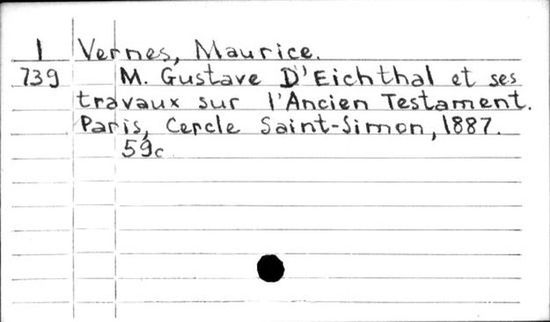 1 Vernes, Maurice.
739 M. Gustave D'Eichthal et ses
travaux sur l'Ancien Testament.
Paris, Cercle Saint-Simon, 1887.
59c